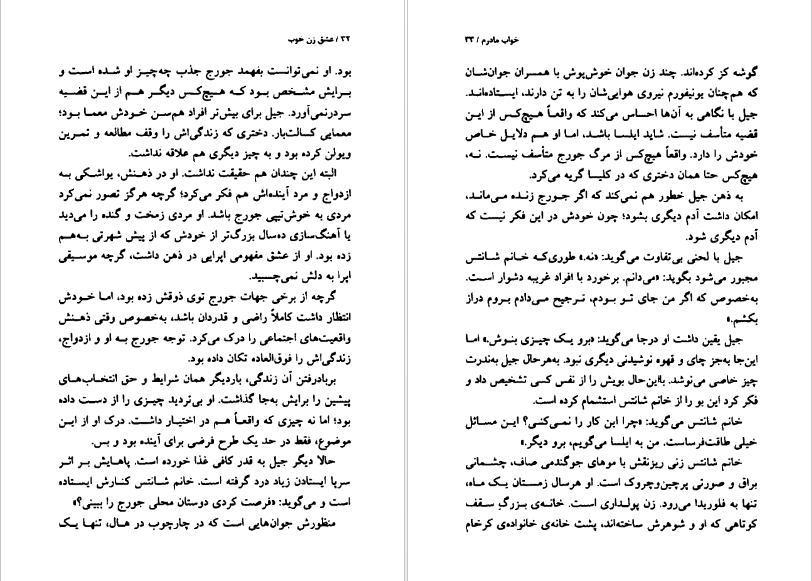 ۳۲ / عشق زن خوب
بود. او نمی‌توانست بفهمد جورج جذب چه‌چیز او شده است و
برایش مشخص بود که هیچ‌کس دیگر هم از این قضیه
سردرنمی‌آورد. جیل برای بیش‌تر افراد هم‌سن خودش معما بود؛
معمایی کسالت‌بار. دختری که زندگی‌اش را وقف مطالعه و تمرین
ویولن کرده بود و به چیز دیگری هم علاقه نداشت.
البته این چندان هم حقیقت نداشت. او در ذهنش، یواشکی به
ازدواج و مرد آینده‌اش هم فکر می‌کرد؛ گرچه هرگز تصور نمی‌کرد
مردی به خوش‌تیپی جورج باشد. او مردی زمخت و گنده را می‌دید
یا آهنگ‌سازی ده‌سال بزرگ‌تر از خودش که از پیش شهرتی به‌هم
زده بود. او از عشق مفهومی اپرایی در ذهن داشت، گرچه موسیقی
اپرا به دلش نمی‌چسبید.
گرچه از برخی جهات جورج توی ذوقش زده بود، اما خودش
انتظار داشت کاملاً راضی و قدردان باشد، به‌خصوص وقتی ذهنش
واقعیت‌های اجتماعی را درک می‌کرد. توجه جورج به او و ازدواج،
زندگی‌اش را فوق‌العاده تکان داده بود.
بربادرفتن آن زندگی، باردیگر همان شرایط و حق انتخاب‌های
پیشین را برایش به‌جا گذاشت. او بی‌تردید چیزی را از دست داده
بود؛ اما نه چیزی که واقعاً هم در اختیار داشت. درک او از این
موضوع، فقط در حد یک طرح فرضی برای آینده بود و بس.
حالا دیگر جیل به قدر کافی غذا خورده است. پاهایش بر اثر
سرپا ایستادن زیاد درد گرفته است. خانم شانتس کنارش ایستاده
است و می‌گوید: «فرصت کردی دوستان محلی جورج را ببینی؟»
منظورش جوان‌هایی است که در چارچوب در هال، تنها یک
خواب مادرم / ۳۳
گوشه کز کرده‌اند. چند زن جوان خوش‌پوش با همسران جوان‌شان
که هم‌چنان یونیفورم نیروی هوایی‌شان را به تن دارند، ایستاده‌اند.
جیل با نگاهی به آن‌ها احساس می‌کند که واقعاً هیچ‌کس از این
قضیه متأسف نیست. شاید ایلسا باشد، اما او هم دلایل خاص
خودش را دارد. واقعاً هیچ‌کس از مرگ جورج متأسف نیست. نه،
هیچ‌کس حتا همان دختری که در کلیسا گریه می‌کرد.
به ذهن جیل خطور هم نمی‌کند که اگر جورج زنده می‌ماند،
امکان داشت آدم دیگری بشود؛ چون خودش در این فکر نیست که
آدم دیگری شود.
جیل با لحنی بی‌تفاوت می‌گوید: «نه.» طوری‌که خانم شانتس
مجبور می‌شود بگوید: «می‌دانم. برخورد با افراد غریبه دشوار است.
به‌خصوص که اگر من جای تو بودم، ترجیح می‌دادم بروم دراز
بکشم.»
جیل یقین داشت او درجا می‌گوید: «برو یک چیزی بنوش.» اما
این‌جا به‌جز چای و قهوه نوشیدنی دیگری نبود. به‌هرحال جیل به‌ندرت
چیز خاصی می‌نوشد. بااین‌حال بویش را از نفس کسی تشخیص داد و
فکر کرد این بو را از خانم شانتس استشمام کرده است.
خانم شانتس می‌گوید: «چرا این کار را نمی‌کنی؟ این مسائل
خیلی طاقت‌فرساست. من به ایلسا می‌گویم، برو دیگر.»
خانم شانتس زنی ریزنقش با موهای جوگندمی صاف، چشمانی
براق و صورتی پرچین‌وچروک است. او هرسال زمستان یک ماه،
تنها به فلوریدا می‌رود. زن پولداری است. خانه‌ی بزرگِ سقف
کوتاهی که او و شوهرش ساخته‌اند، پشت خانه‌ی خانواده‌ی کرخام